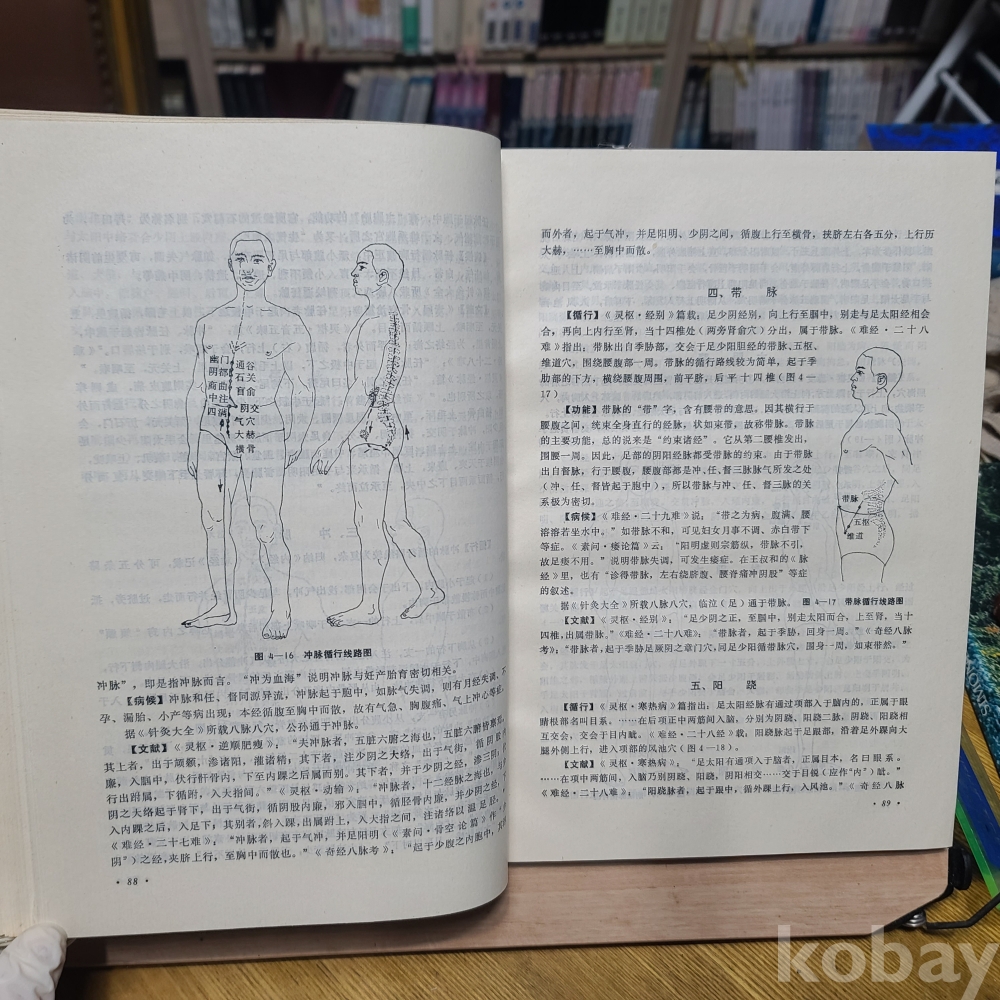 幽 门
阴 都
商 曲
中 注
四 满
通 谷
石 关
肓 俞
阴 交
气 穴
大 赫
横 骨
图 4—16 冲脉循行线路图
冲脉”，即是指冲脉而言。“冲为血海”说明冲脉与妊产胎育密切相关。
【病候】冲脉和任、督同源异流，冲脉起于胞中，如脉气失调，则有月经失调、不
孕、漏胎、小产等病出现；本经循腹至胸中而散，故有气急、胸腹痛、气上冲心等症。
据《针灸大全》所载八脉八穴，公孙通于冲脉。
【文献】《灵枢·逆顺肥瘦》；“夫冲脉者，五脏六腑之海也，五脏六腑皆禀焉。
其上者，出于颃颡，渗诸阳，灌诸精；其下者，注少阴之大络，出于气街，循阴股内
廉，入腘中，伏行骭骨内，下至内踝之后属而别。其下者，并于少阴之经，渗三阴；其前者，伏
行出跗属，下循跗，入大指间。”《灵枢·动输》；“冲脉者，十二经脉之海也，与少
阴之大络起于肾下，出于气街，循阴股内廉，邪入腘中，循胫骨内廉，并少阴之经，下
入内踝之后，入足下；其别者，斜入踝，出属跗上，入大指之间，注诸络以温足胫。”
《难经·二十七难》；“冲脉者，起于气冲，并足阳明（《素问·骨空论篇》作“少
阴”）之经，夹脐上行，至胸中而散也。”《奇经八脉考》；“起于少腹之内胞中，
· 88 ·
而外者，起于气冲，并足阳明、少阴之间，循腹上行至横骨，挟脐左右各五分，上行历
大赫，……至胸中而散。
四、带 脉
【循行】《灵枢·经别》篇载；足少阴经别，向上行至腘中，别走与足太阳经相会
合，再向上内行至肾，当十四椎处（两旁肾俞穴）分出，属于带脉。《难经·二十八
难》指出；带脉出自季胁部，交会于足少阳胆经的带脉、五枢、
维道穴，围绕腰腹部一周。带脉的循行路线较为简单，起于季
肋部的下方，横绕腰腹周围，前平脐，后平十四椎（图4—
17）
【功能】带脉的“带”字，含有腰带的意思，因其横行于
腰腹之间，统束全身直行的经脉，状如束带，故称带脉。带脉
的主要功能，总的说来是“约束诸经”。它从第二腰椎发出，
围腰一周。因此，足部的阴阳经脉都受带脉的约束。由于带脉
出自督脉，行于腰腹，腰腹部都是冲、任、督三脉脉气所发之处
（冲、任、督皆起于胞中），所以带脉与冲、任、督三脉的关
系极为密切。
【病候】《难经·二十九难》说；“带之为病，腹满、腰
溶溶若坐水中。”如带脉不和，可见妇女月事不调、赤白带下
等症。《素问·痿论篇》云；“阳明虚则宗筋纵，带脉不引，
故足痿不用。”说明带脉失调，可发生痿症。在王叔和的《脉
经》里，也有“诊得带脉，左右绕脐腹、腰脊痛冲阴股”等症
的叙述。
据《针灸大全》所载八脉八穴，临泣（足）通于带脉。
带脉
五枢
维道
图 4—17 带脉循行线路图
【文献】《灵枢·经别》；“足少阴之正，至腘中，别走太阳而合，上至肾，当十
四椎，出属带脉。”《难经·二十八难》；“带脉者，起于季胁，回身一周。”《奇经八脉
考》；“带脉者，起于季胁足厥阴之章门穴，同足少阳循带脉穴，围身一周，如束带然。”
五、阳 跷
【循行】《灵枢·寒热病》篇指出；足太阳经脉有通过项部入于脑内的，正属于眼
睛根部名叫目系。……在后项正中两筋间入脑，分别为阴跷、阳跷二脉，阴跷、阳跷相
互交会，交会于目内眦。《难经·二十八经》载；阳跷脉起于足跟部，沿着足外踝向大
腿外侧上行，进入项部的风池穴（图4—18）。
【文献】《灵枢·寒热病》；；“足太阳有通项入于脑者，正属目本，名曰眼系。”
“……在项中两筋间，入脑乃别阴跷、阳跷，阴阳相交……交于目锐（应作“内”）眦。”
《难经·二十八难》；“阳跷脉者，起于跟中，循外踝上行，入风池。”《奇经八脉
· 89 ·
kobay